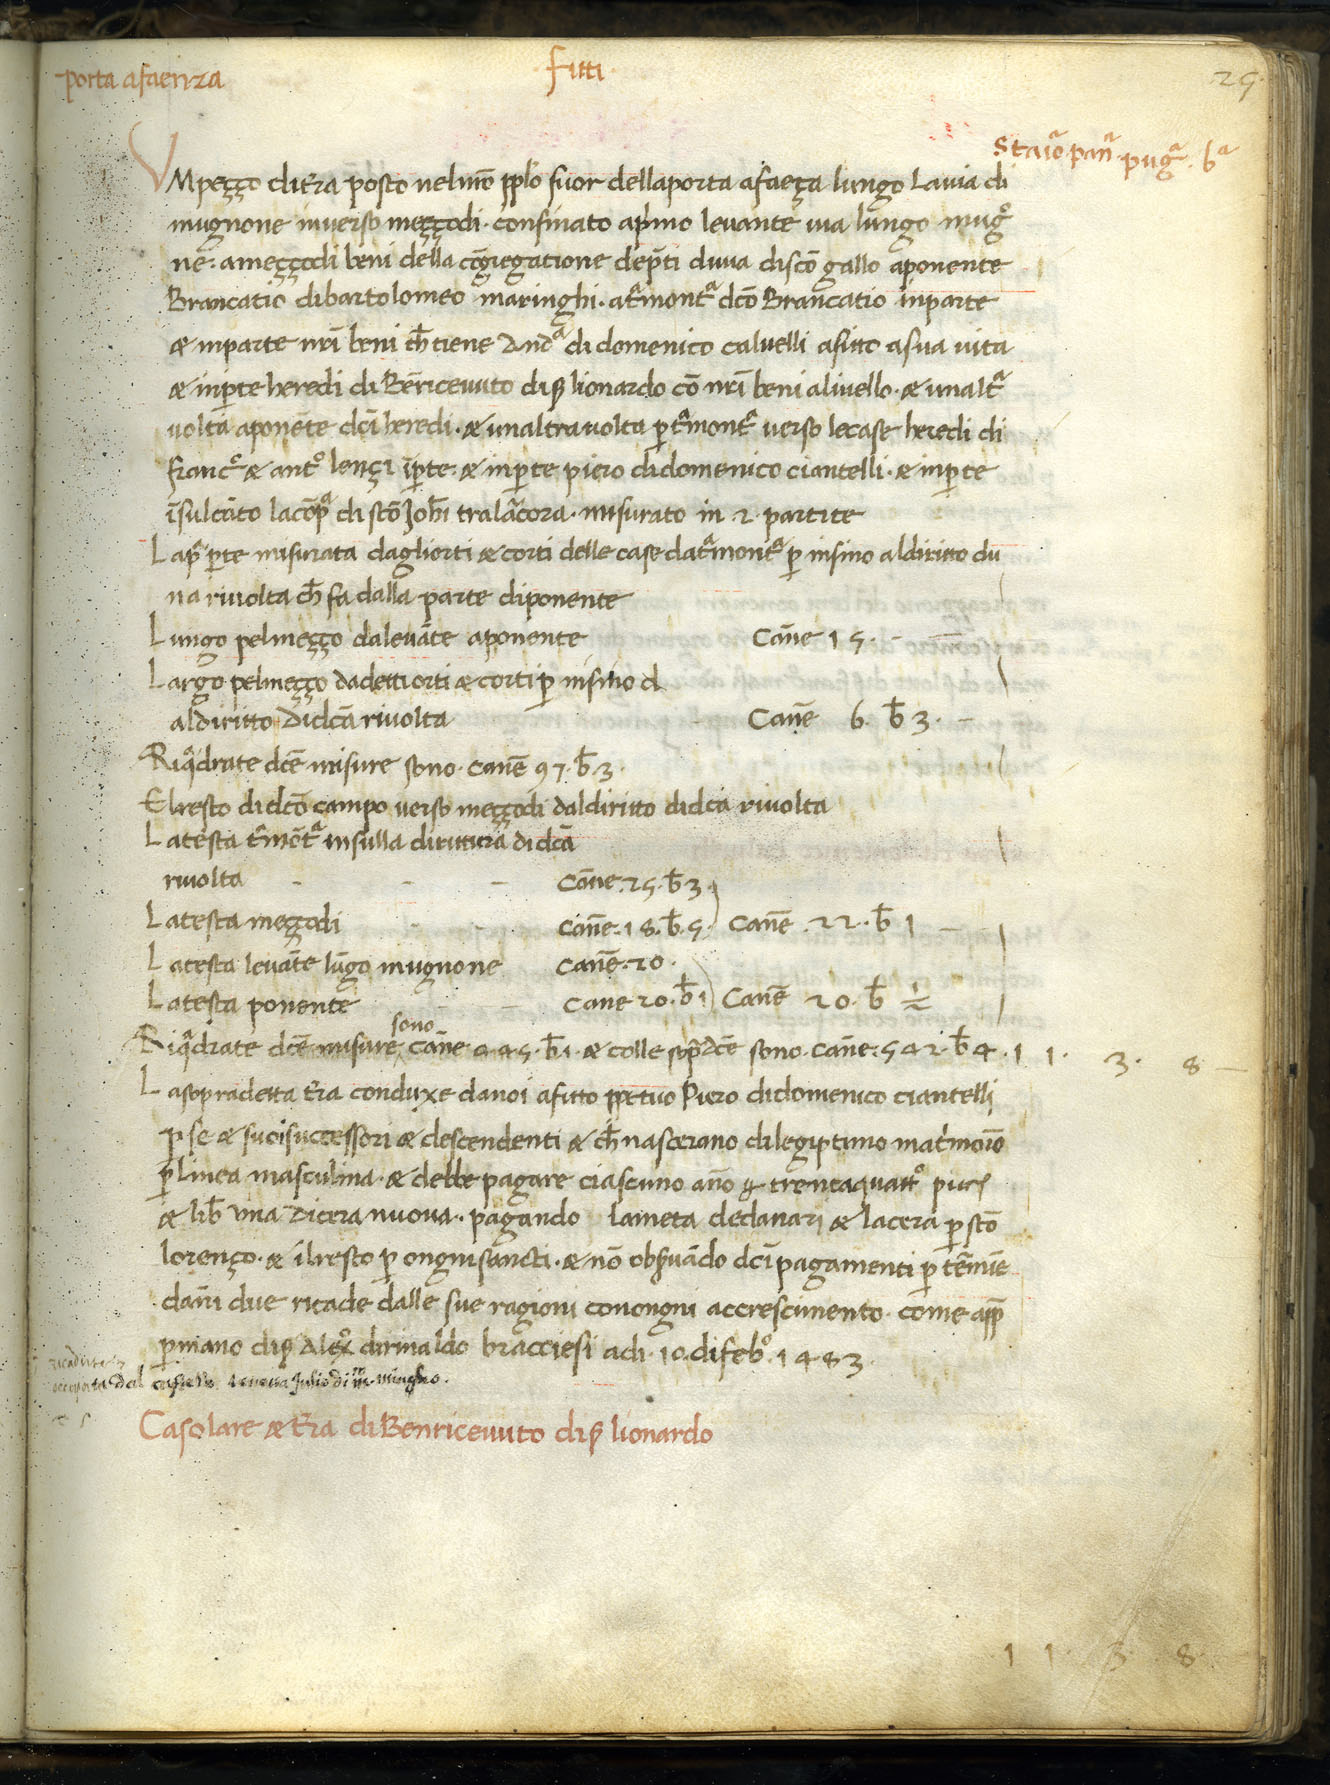 porta afaenza
Fitti
25
Staiᵒ.panᵃ.pugᵃ.bᵃ
VM peçço di tr̄a posto nel nrō pp̄lo fuor della porta afaeça lungo Lauia di
mugnone inuerso meççodi. confinato ap̄imo leuante uia lungo mugᵒ
ne. ameççodi beni della cōgregatione dep̄ti duua discō gallo aponente
Brancatio dibartolomeo maringhi. atᵃmontᵃ dcō Brancatio inparte
& inparte nrī beni ch̄ tiene Andᵃ di domenico caluelli afitto asua uita
& inp̄te heredi di Bēriceuuto diß lionardo cō nrī beni aliuello. & unaltᵃ
uolta aponēte dcī heredi. & unaltra uolta p̄ tᵃmontᵃ verso lecase heredi di
francᵒ & antᵒ lençi īp̄te & inp̄te piero didomenico ciantelli. & inp̄te
īsulcāto lacōpᵃ di scō Zobī tralācora. misurato in .2. partite
Lap̄ p̄te misurata dagliorti & corti delle case datᵃmontᵃ p̄ insino aldiritto du
na riuolta ch̄ fa dalla parte diponente
Lungo pelmeçço daleuāte aponente Cāne 15. -
Largo pelmeçço dadetti orti & corti p̄ insino d
aldiritto didcā riuolta - Canē 6. b̄ 3. -
Riqᵃdrate dcē misure sono. canē 97. b̄.3.
Elresto didcō campo verso meççodi daldiritto didcā riuolta
Latesta tᵃmōtᵃ insulla dirittura didcā
riuolta - - - Cāne. 25. b̄ 3.
Latesta meççodi - - canē. 18. b̄. 5. Canē .22. b̄ 1 - -
Latesta leuāte lūgo mugnone canē. 20.
Latesta ponente - Cane 20. b̄ 1 Canē 20. b̄ ½
Riqᵃdrate dcē misure sono cāne 445. b̄ 1. & colle sop̄dcē sono. canē. 542. b̄ 4. 1 1. 3. 8 -
Lasopradetta tr̄a conduxe danoi afitto pp̄etuo Piero didomenico ciantelli
p̄ se & suoi successori & descendenti & ch̄ nascerano dilegiptimo mat̄imoīo
p̄ linea masculina. & debbe pagare ciascuno año trentaquattᵒ picci
& lib̄ vna dicera nuoua. pagando lameta dedanari & lacera p̄ scō
lorenço. & ilresto p̄ ongnisancti. & nō obs̄uādo dcī pagamenti p̄ tēmīe
danni due ricade dalle sue ragioni conongni accrescimento. come app̄
p̄ mano diß Alexᵒ dirinaldo bracciesi adi .10. difebᵒ. 1483.
Casolare & tr̄a di Benriceuuto diß lionardo
1 1. 3. 8.